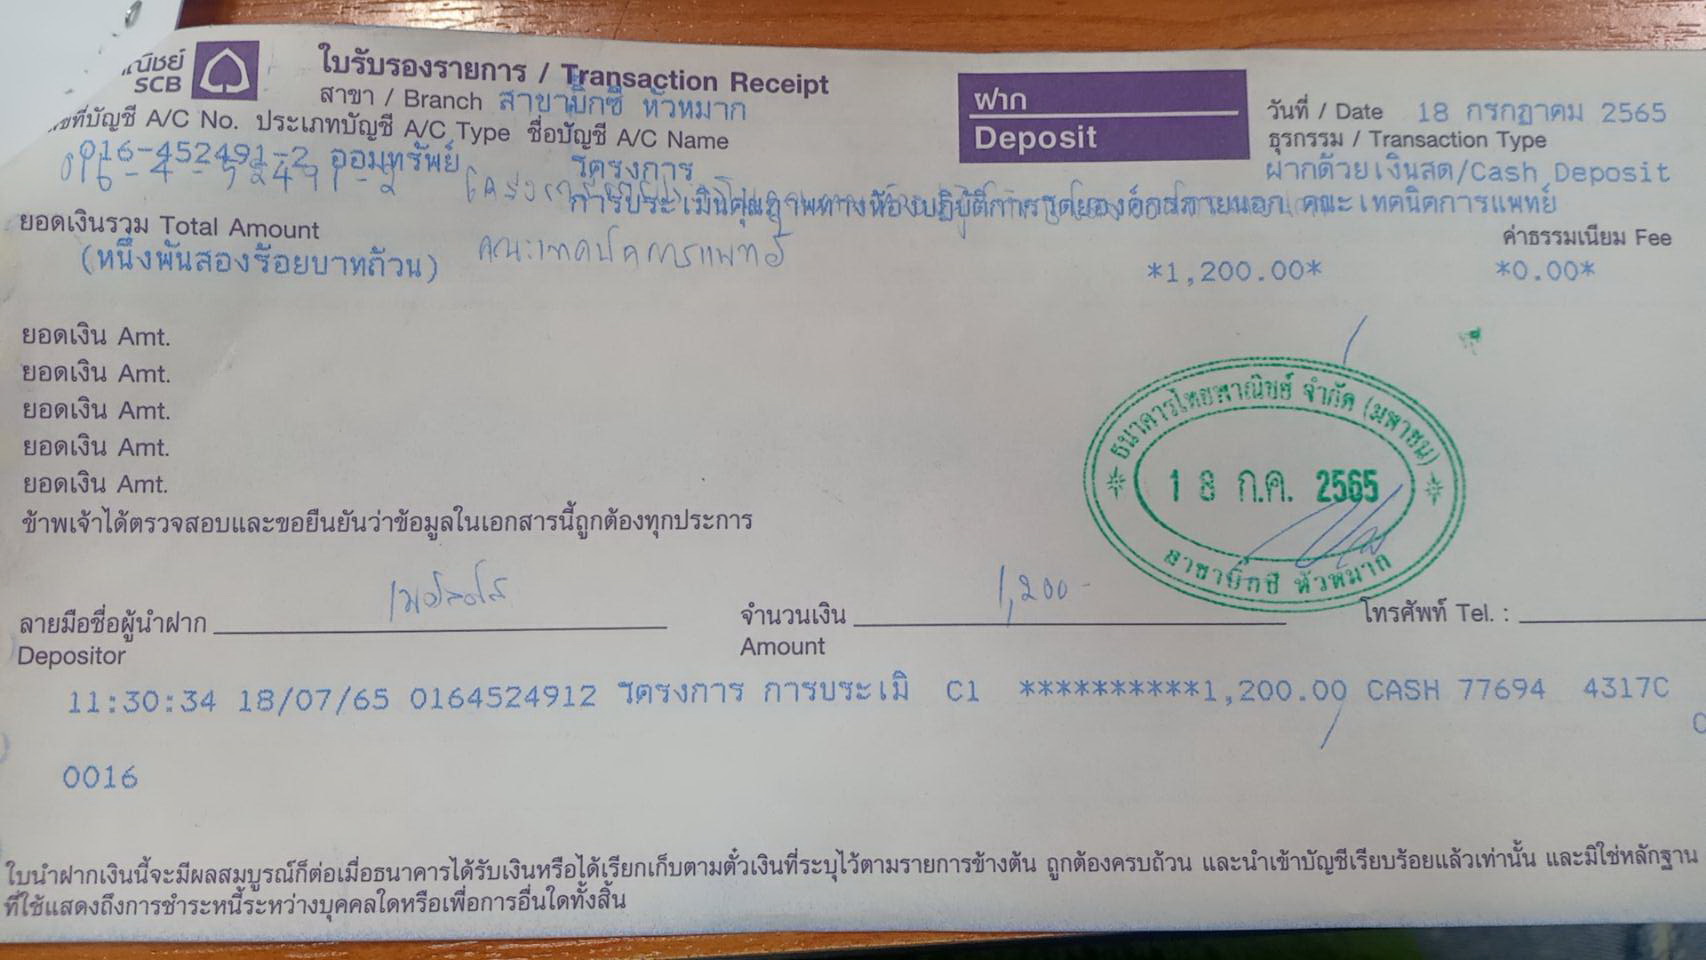 ณิชย์
SCB
ใบรับรองรายการ / Transaction Receipt
สาขา / Branch สาขาบิ๊กซี หัวหมาก
ฝาก
Deposit
วันที่ / Date 18 กรกฎาคม 2565
ธุรกรรม / Transaction Type
ฝากด้วยเงินสด/Cash Deposit
ขที่บัญชี A/C No. ประเภทบัญชี A/C Type ชื่อบัญชี A/C Name
016-452491-2 ออมทรัพย์ โครงการ
016-4-52491-2
การประเมินคุณภาพทางห้องปฏิบัติการโดยองค์กรภายนอก คณะเทคนิคการแพทย์
คณะเทคนิคการแพทย์
ยอดเงินรวม Total Amount
ค่าธรรมเนียม Fee
(หนึ่งพันสองร้อยบาทถ้วน) *1,200.00* *0.00*
ยอดเงิน Amt.
ยอดเงิน Amt.
ยอดเงิน Amt.
ยอดเงิน Amt.
ยอดเงิน Amt.
ธนาคารไทยพาณิชย์ จำกัด (มหาชน)
18 ก.ค. 2565
สาขาบิ๊กซี หัวหมาก
ข้าพเจ้าได้ตรวจสอบและขอยืนยันว่าข้อมูลในเอกสารนี้ถูกต้องทุกประการ
ลายมือชื่อผู้นำฝาก
Depositor
จำนวนเงิน 1,200-
Amount
โทรศัพท์ Tel. :
11:30:34 18/07/65 0164524912 โครงการ การประเมิ C1 **********1,200.00 CASH 77694 4317C
0016
ใบนำฝากเงินนี้จะมีผลสมบูรณ์ก็ต่อเมื่อธนาคารได้รับเงินหรือได้เรียกเก็บตามตั๋วเงินที่ระบุไว้ตามรายการข้างต้น ถูกต้องครบถ้วน และนำเข้าบัญชีเรียบร้อยแล้วเท่านั้น และมิใช่หลักฐาน
ที่ใช้แสดงถึงการชำระหนี้ระหว่างบุคคลใดหรือเพื่อการอื่นใดทั้งสิ้น